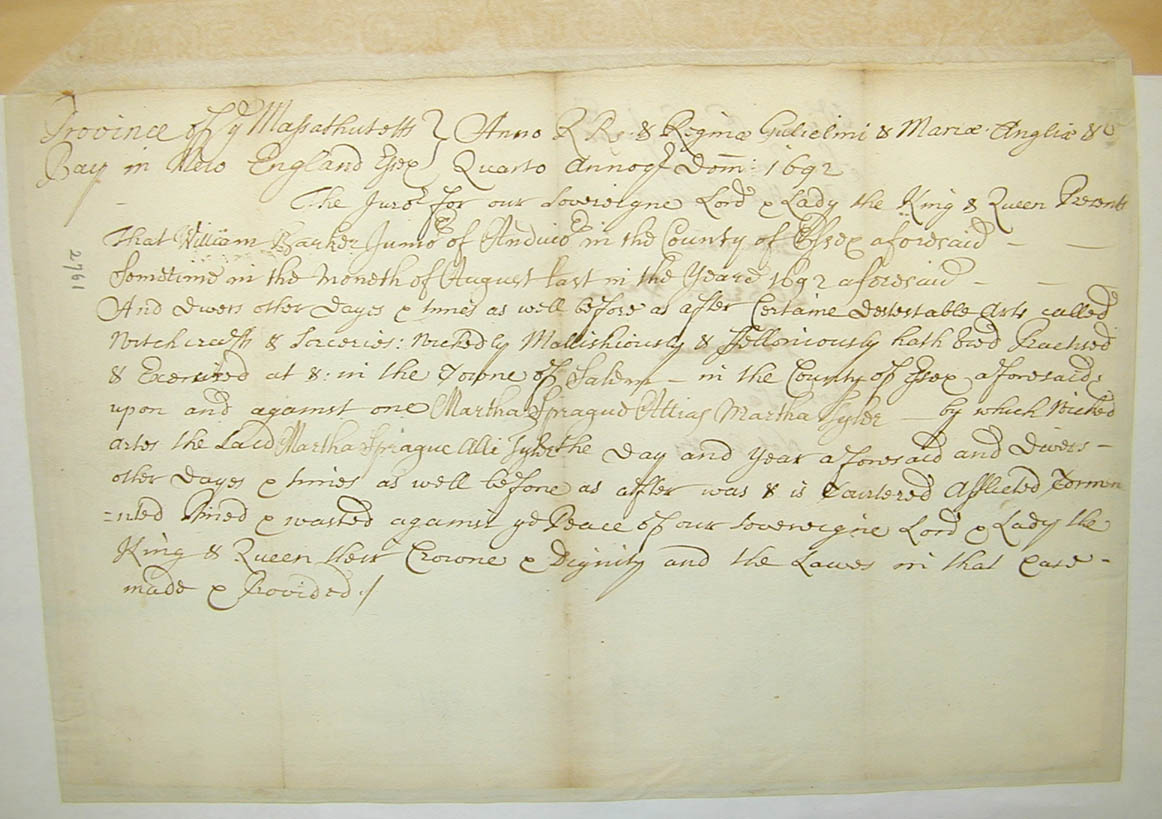 Province of yᵉ Massathusetts } Anno R Rˢ: & Reginæ Gulielmi & Mariæ Angliæ &c
Bay in New England Essex } Quarto Annoqꝫ Dom̅: 1692
The Juroʳˢ for our Sovereigne Lord & Lady the King & Queen Presents
That William Barker Junioʳ of Andivoʳ in the County of Essex aforesaid — —
Sometime in the Moneth of August last in the Yeare 1692 aforesaid — —
And divers other Dayes & times as well before as after Certaine Detestable Arts called
Witchcrafts & Sorceries: Wickedly Mallishiously & Felloniously hath used Practised
& Exercised at & in the Towne of Salem — in the County of Essex aforesaid
upon and against one Martha Sprague Allias Martha Tyler — by which Wicked
artes the said Martha Sprague Alli Tyler the Day and Year aforesaid and Divers —
other Dayes & times as well before as after was & is Tourtered Afflicted Tormen
=nted Pined & wasted against ye Peace of our Sovereigne Lord & Lady the
King & Queen their Crowne & Dignity and the Lawes in that Case -
made & Provided /
2761